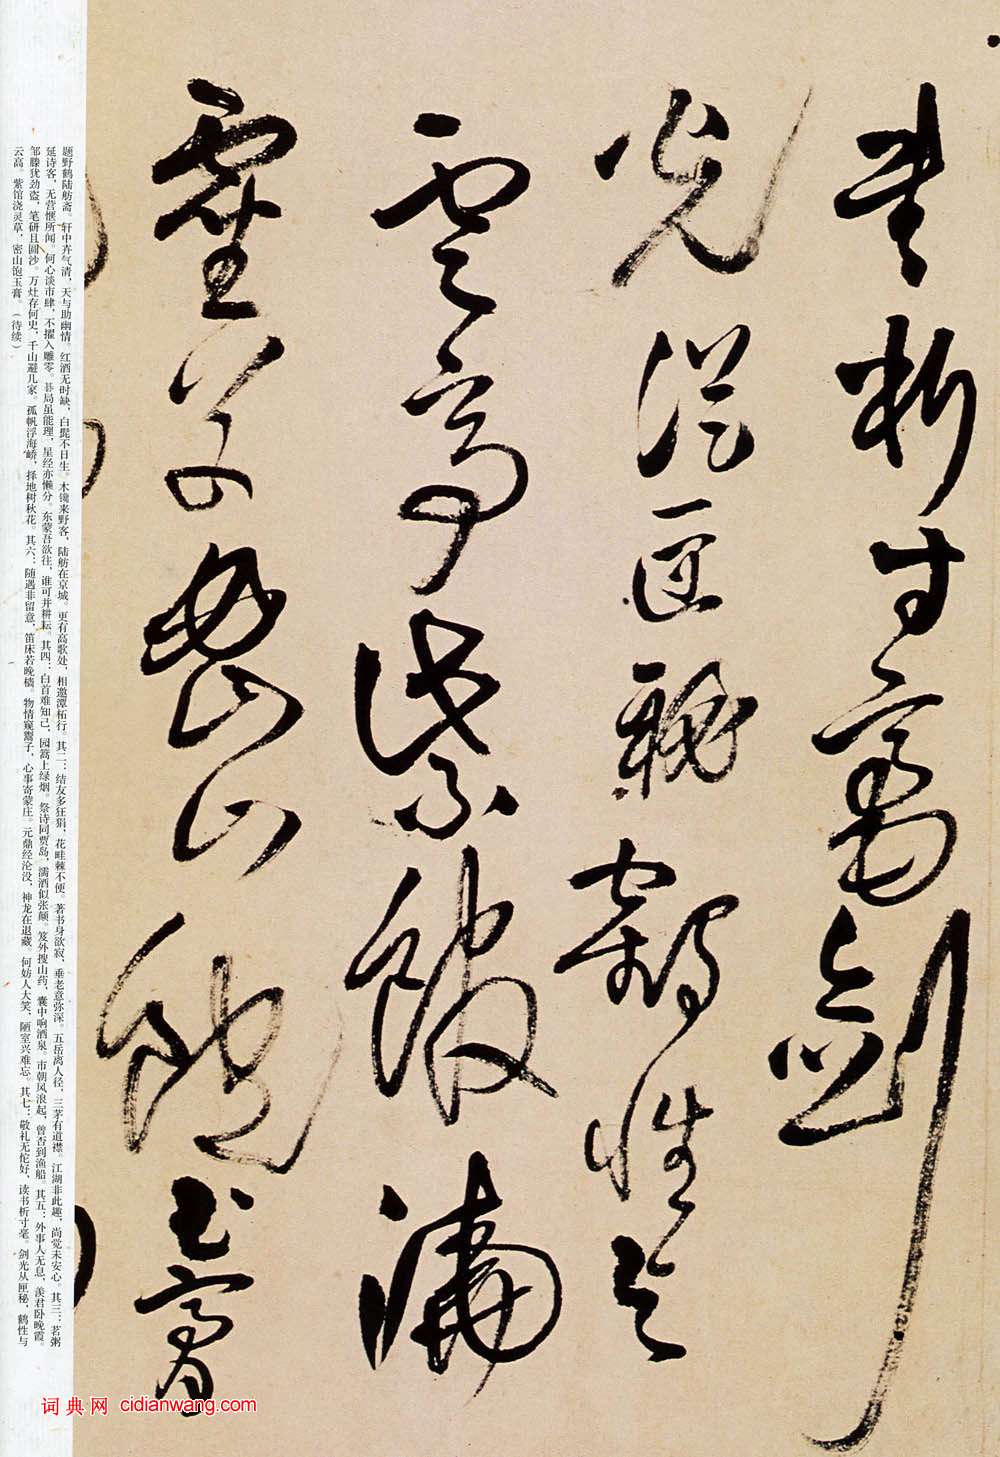 书析寸毫剑
光从匣秘鹤性与
云高紫馆浇
灵草密山饱玉膏
题野鹤陆舫斋。轩中卉气清，天与助幽情。红酒无时缺，白髭不日生。木镜来野客，陆舫在京城。更有高歌处，相邀潭柘行。其二：结友多狂狷，花畦棘不便。著书身欲寂，垂老意弥深。五岳离人径，三茅有道襟。江湖非此趣，尚觉未安心。其三：茗粥
延诗客，无营惬所闻。何心谈市肆，不擢入雕零。棊局虽能理，星经亦懒分。东蒙吾欲往，谁可并耕耘。其四：白首难知己，园蒿上绿烟。祭诗同贾岛，濡酒似张颠。笈外搜山药，囊中响酒泉。市朝风浪起，曾否到渔船。其五：外事人无息，羡君卧晚霞。
邹滕犹劲盗，笔研且圆沙。万灶存何史，千山避几家。孤帆浮海峤，择地树秋花。其六：随遇非留意，笛床若晚樯。物情窥鬻子，心事寄蒙庄。元鼎经沦没，神龙在退藏。何妨人大笑，陋室兴难忘。其七：敬礼无佗好，读书析寸毫。剑光从匣秘，鹤性与
云高。紫馆浇灵草，密山饱玉膏。（待续）
词典网 cidianwang.com